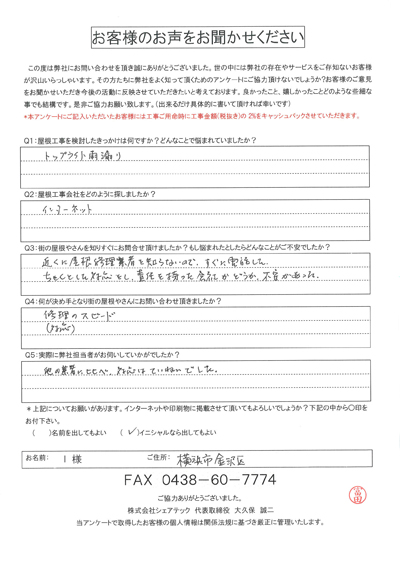 お客様のお声をお聞かせください
この度は弊社にお問い合わせを頂き誠にありがとうございました。世の中には弊社の存在やサービスをご存知ないお客様
が沢山いらっしゃいます。その方たちに弊社をよく知って頂くためのアンケートにご協力頂けないでしょうか?お客様のご意見
をお聞かせいただき今後の活動に反映させていきたいと考えております。良かったこと、嬉しかったことどのような些細な
事でも結構です。是非ご協力お願い致します。(出来るだけ具体的に書いて頂ければ幸いです)
*本アンケートにご記入いただいたお客様には工事ご所命時に工事金額(税抜き)の 2%をキャッシュバックさせていただきます。
Q1:屋根工事を検討したきっかけは何ですか?どんなことで悩まれていましたか?
トップライト雨漏り
Q2:屋根工事会社をどのように探しましたか?
インターネット
Q3:街の屋根やさんを知りすぐにお問合せ頂けましたか?もし悩まれたとしたらどんなことがご不安でしたか?
近くに屋根修理業者を知らないので、すぐに電話した。
ちゃんとした対応をし、責任を持った会社かどうか、不安があった。
Q4:何が決め手となり街の屋根やさんにお問い合わせ頂きましたか?
修理のスピード
(対応)
Q5:実際に弊社担当者がお伺いしていかがでしたか?
他の業者に比べ、対応はていねいでした。
*上記についてお願いがあります。インターネットや印刷物に掲載させて頂いてもよろしいでしょうか?下記の中から〇印を
お付下さい。
( )名前を出してもよい (✓)イニシャルなら出してもよい
お名前: I 様 ご住所: 横浜市金沢区
FAX 0438-60-7774
ご協力ありがとうございました。
株式会社シェアテック 代表取締役 大久保 誠二
当アンケートで取得したお客様の個人情報は関係法規に基づき厳正に管理いたします。
富田